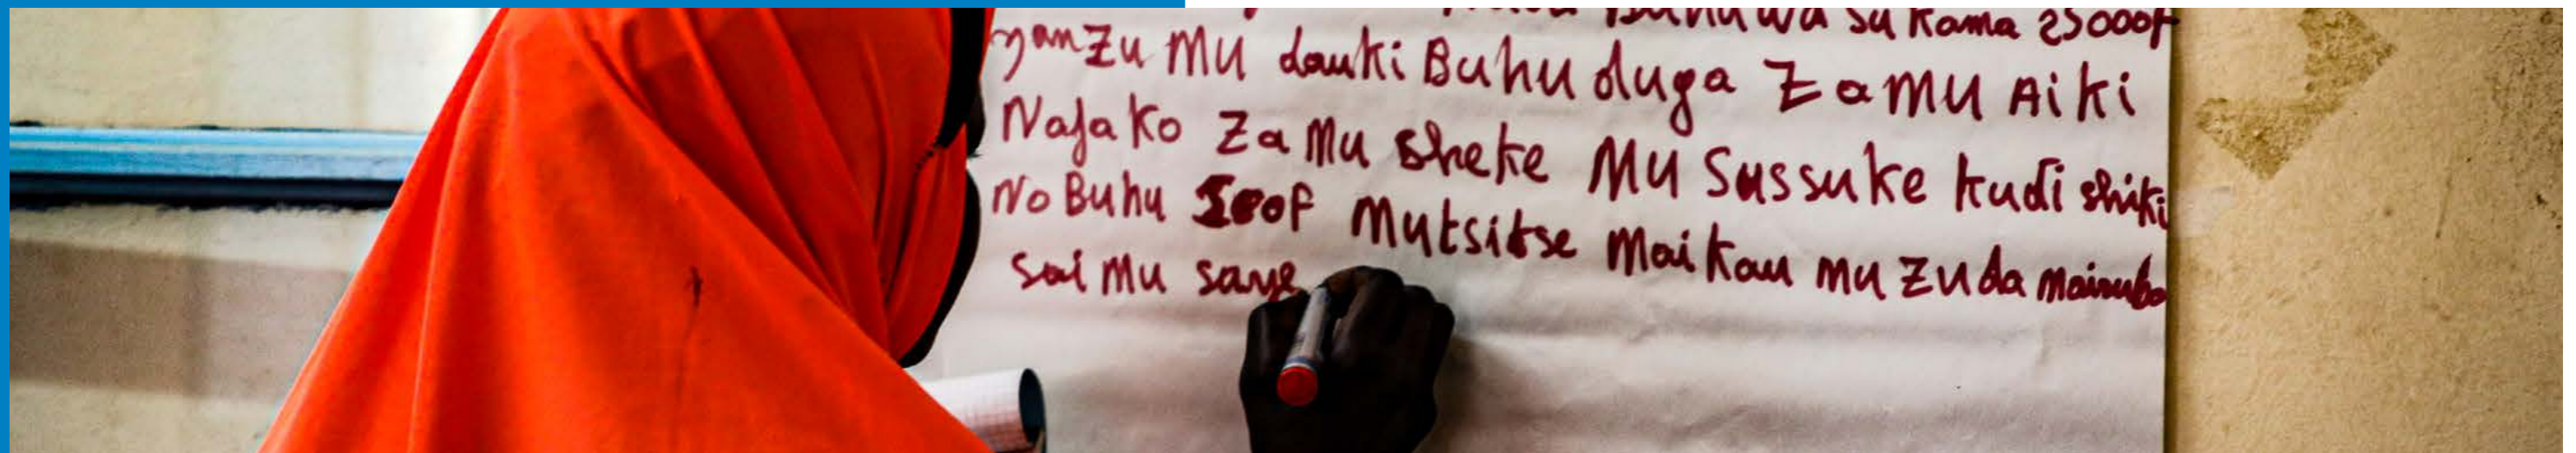 Buhuwa su kama 25000F
yanzu Mu dauki Buhu duga Zamu Aiki
Najako Zamu sheke Mu Sussuke kudi shiki
No Buhu 500F Mutsitse Mai kau mu zuda
Sai Mu saye